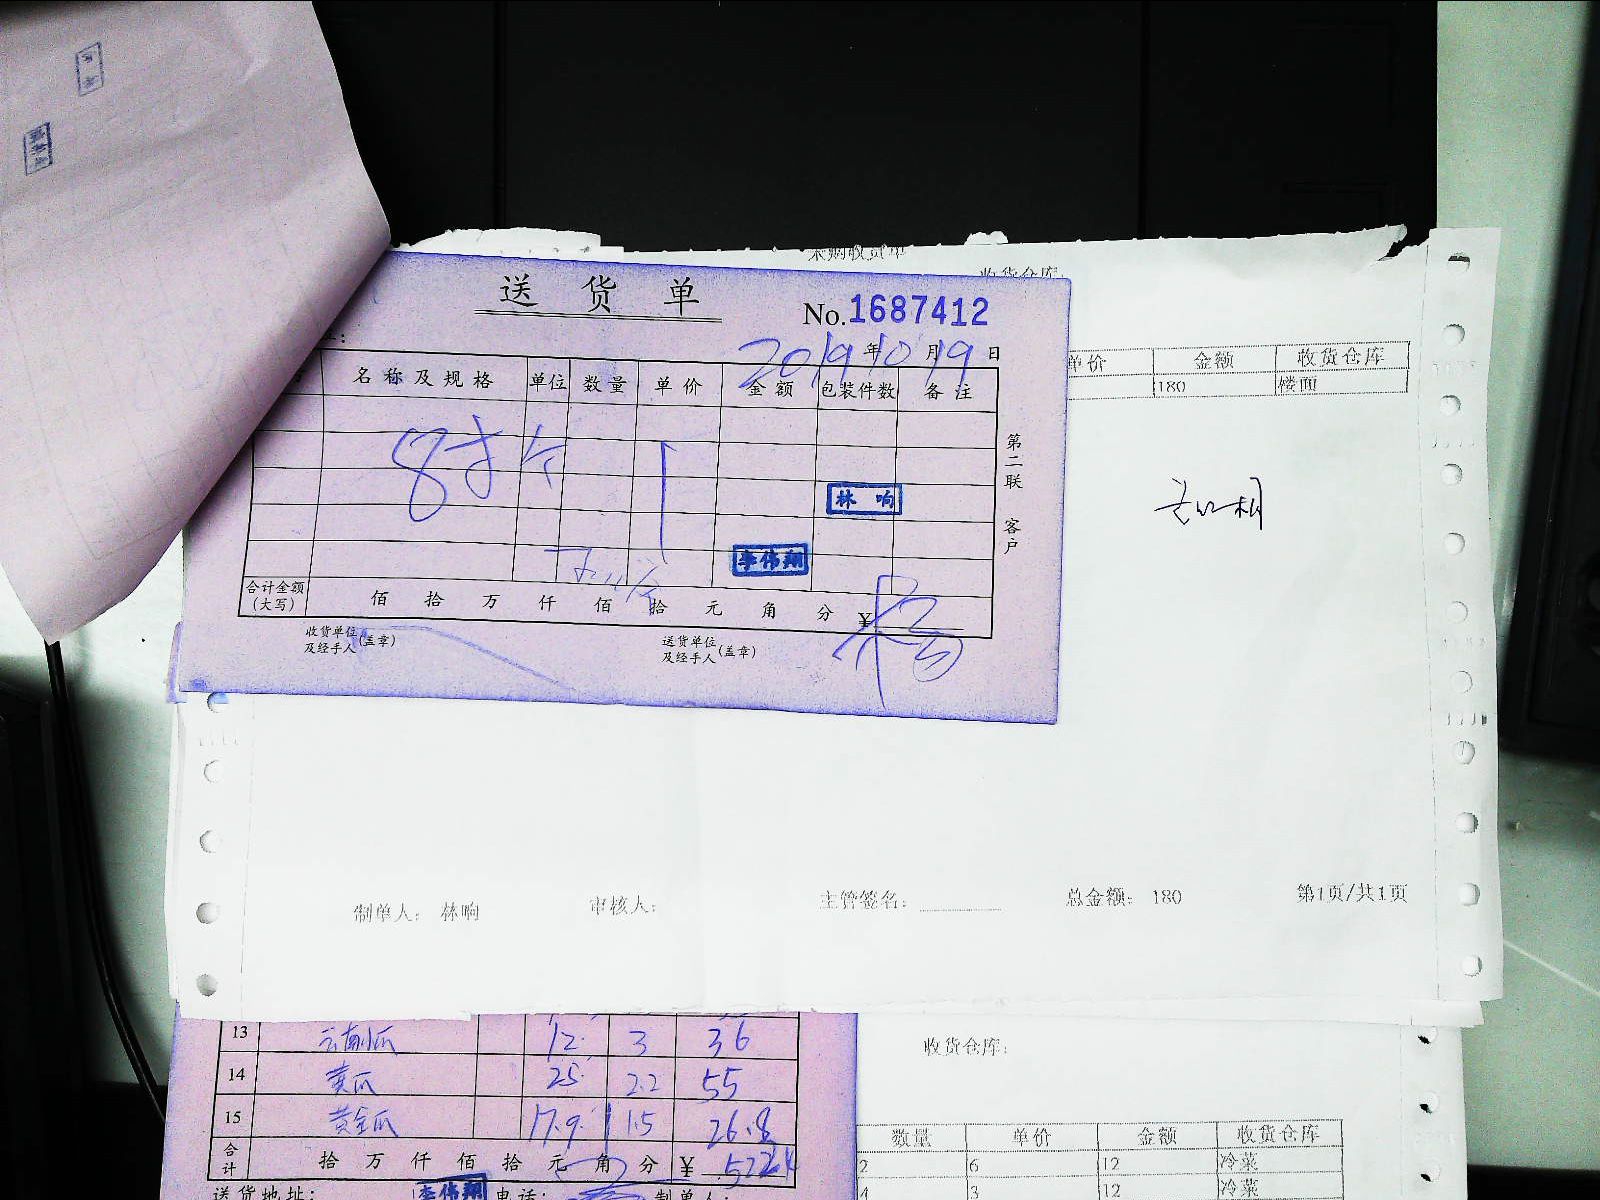 采购收货单
收货仓库:
送货单
No.1687412
2019年10月19日
名称及规格 单位 数量 单价 金额 包装件数 备注
单价 金额 收货仓库
180 楼面
8寸
个
林响
李伟翔
第二联 客户
合计金额(大写) 佰 拾 万 仟 佰 拾 元 角 分 ¥
收货单位及经手人(盖章) 送货单位及经手人(盖章)
制单人: 林响 审核人: 主管签名: 总金额: 180 第1页/共1页
13 云南小瓜 12. 3 36
14 黄瓜 25. 2.2 55
15 黄金瓜 17.9. 1.5 26.8
合计 拾 万 仟 佰 拾 元 角 分 ¥
送货地址: 李伟翔 电话: 制单人:
收货仓库:
数量 单价 金额 收货仓库
2 6 12 冷菜
4 3 12 冷菜